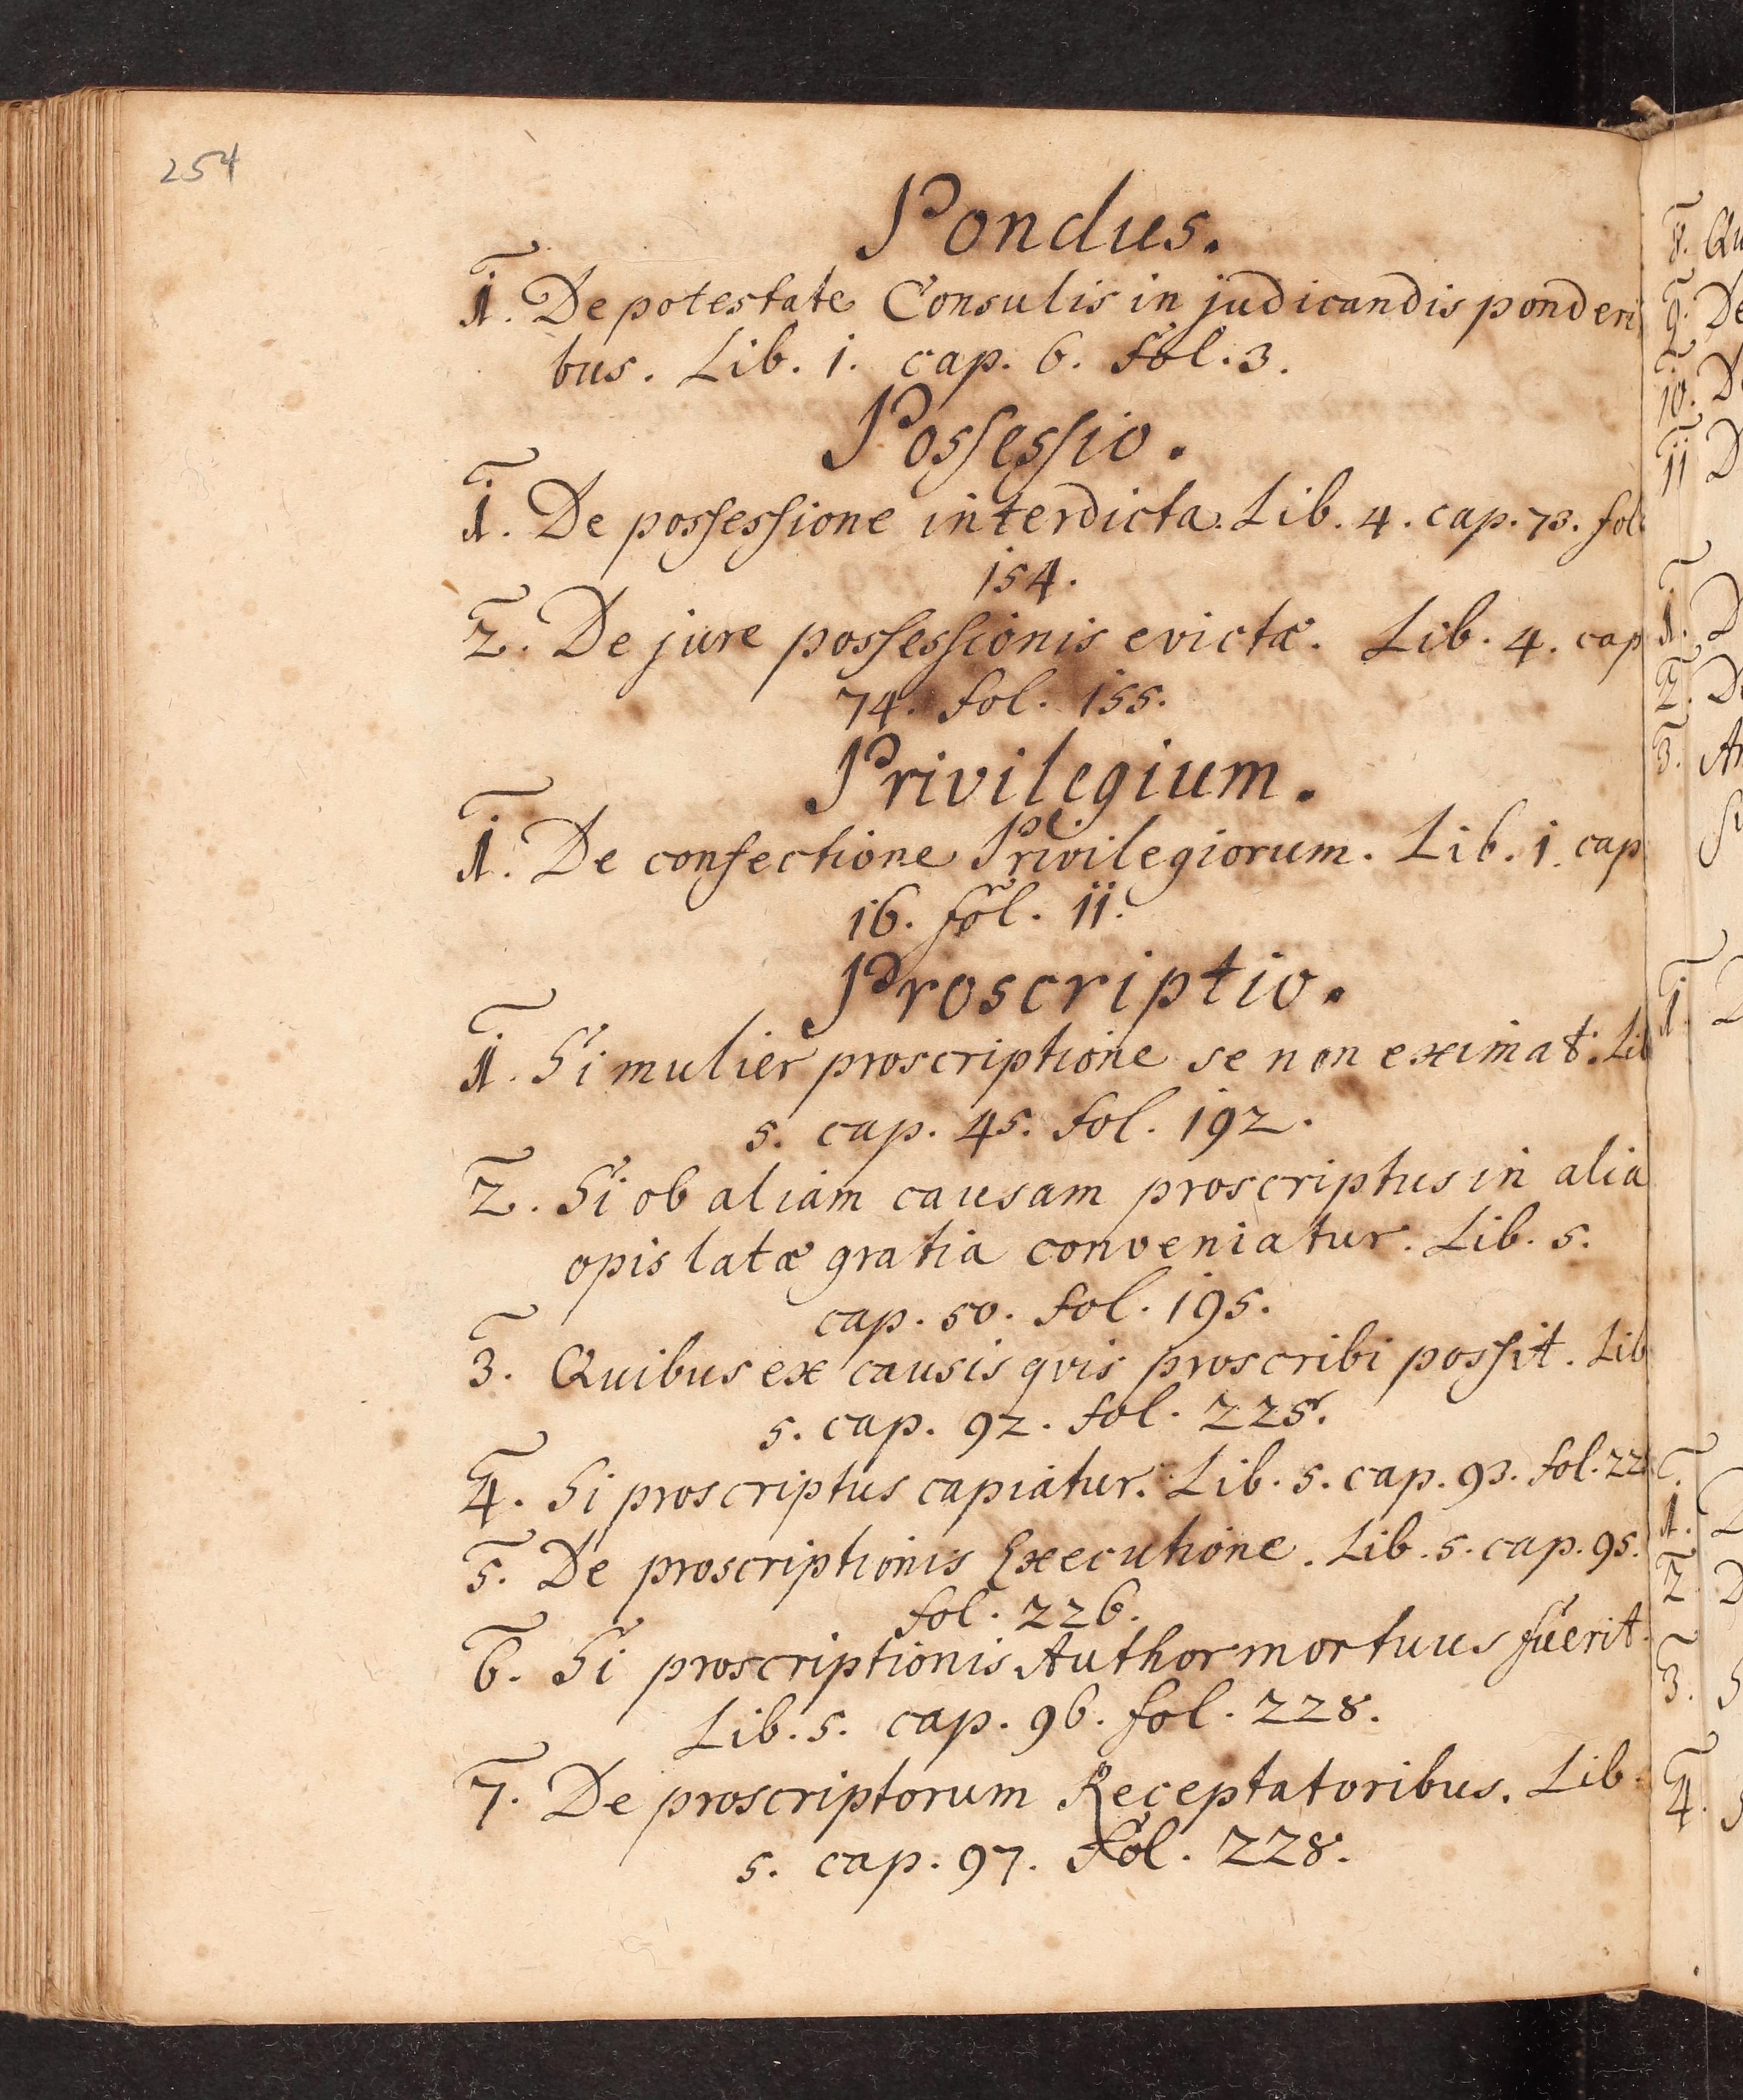 254
Pondus.
1. De potestate Consulis in judicandis ponderi
bus. Lib. 1. cap. 6. fol. 3.
Possessio.
1. De possessione interdicta. Lib. 4. cap. 73. fol
154.
2. De jure possessionis evictæ. Lib. 4. cap
74. fol. 155.
Privilegium.
1. De confectione Privilegiorum. Lib. 1. cap
16. fol. 11.
Proscriptio.
1. Si mulier proscriptione se non eximat. Lib
5. cap. 45. fol. 192.
2. Si ob aliam causam proscriptus in alia
opis latæ gratia conveniatur. Lib. 5.
cap. 50. fol. 195.
3. Quibus ex causis qvis proscribi possit. Lib
5. cap. 92. fol. 225.
4. Si proscriptus capiatur. Lib. 5. cap. 93. fol. 22
5. De proscriptionis Executione. Lib. 5. cap. 95.
fol. 226.
6. Si proscriptionis Author mortuus fuerit.
Lib. 5. cap. 96. fol. 228.
7. De proscriptorum Receptatoribus. Lib.
5. cap. 97. fol. 228.
8. Qu
9. De
10. D
11 D
1. D
2. De
3. An
1. D
1. D
2. D
3. S
4. S